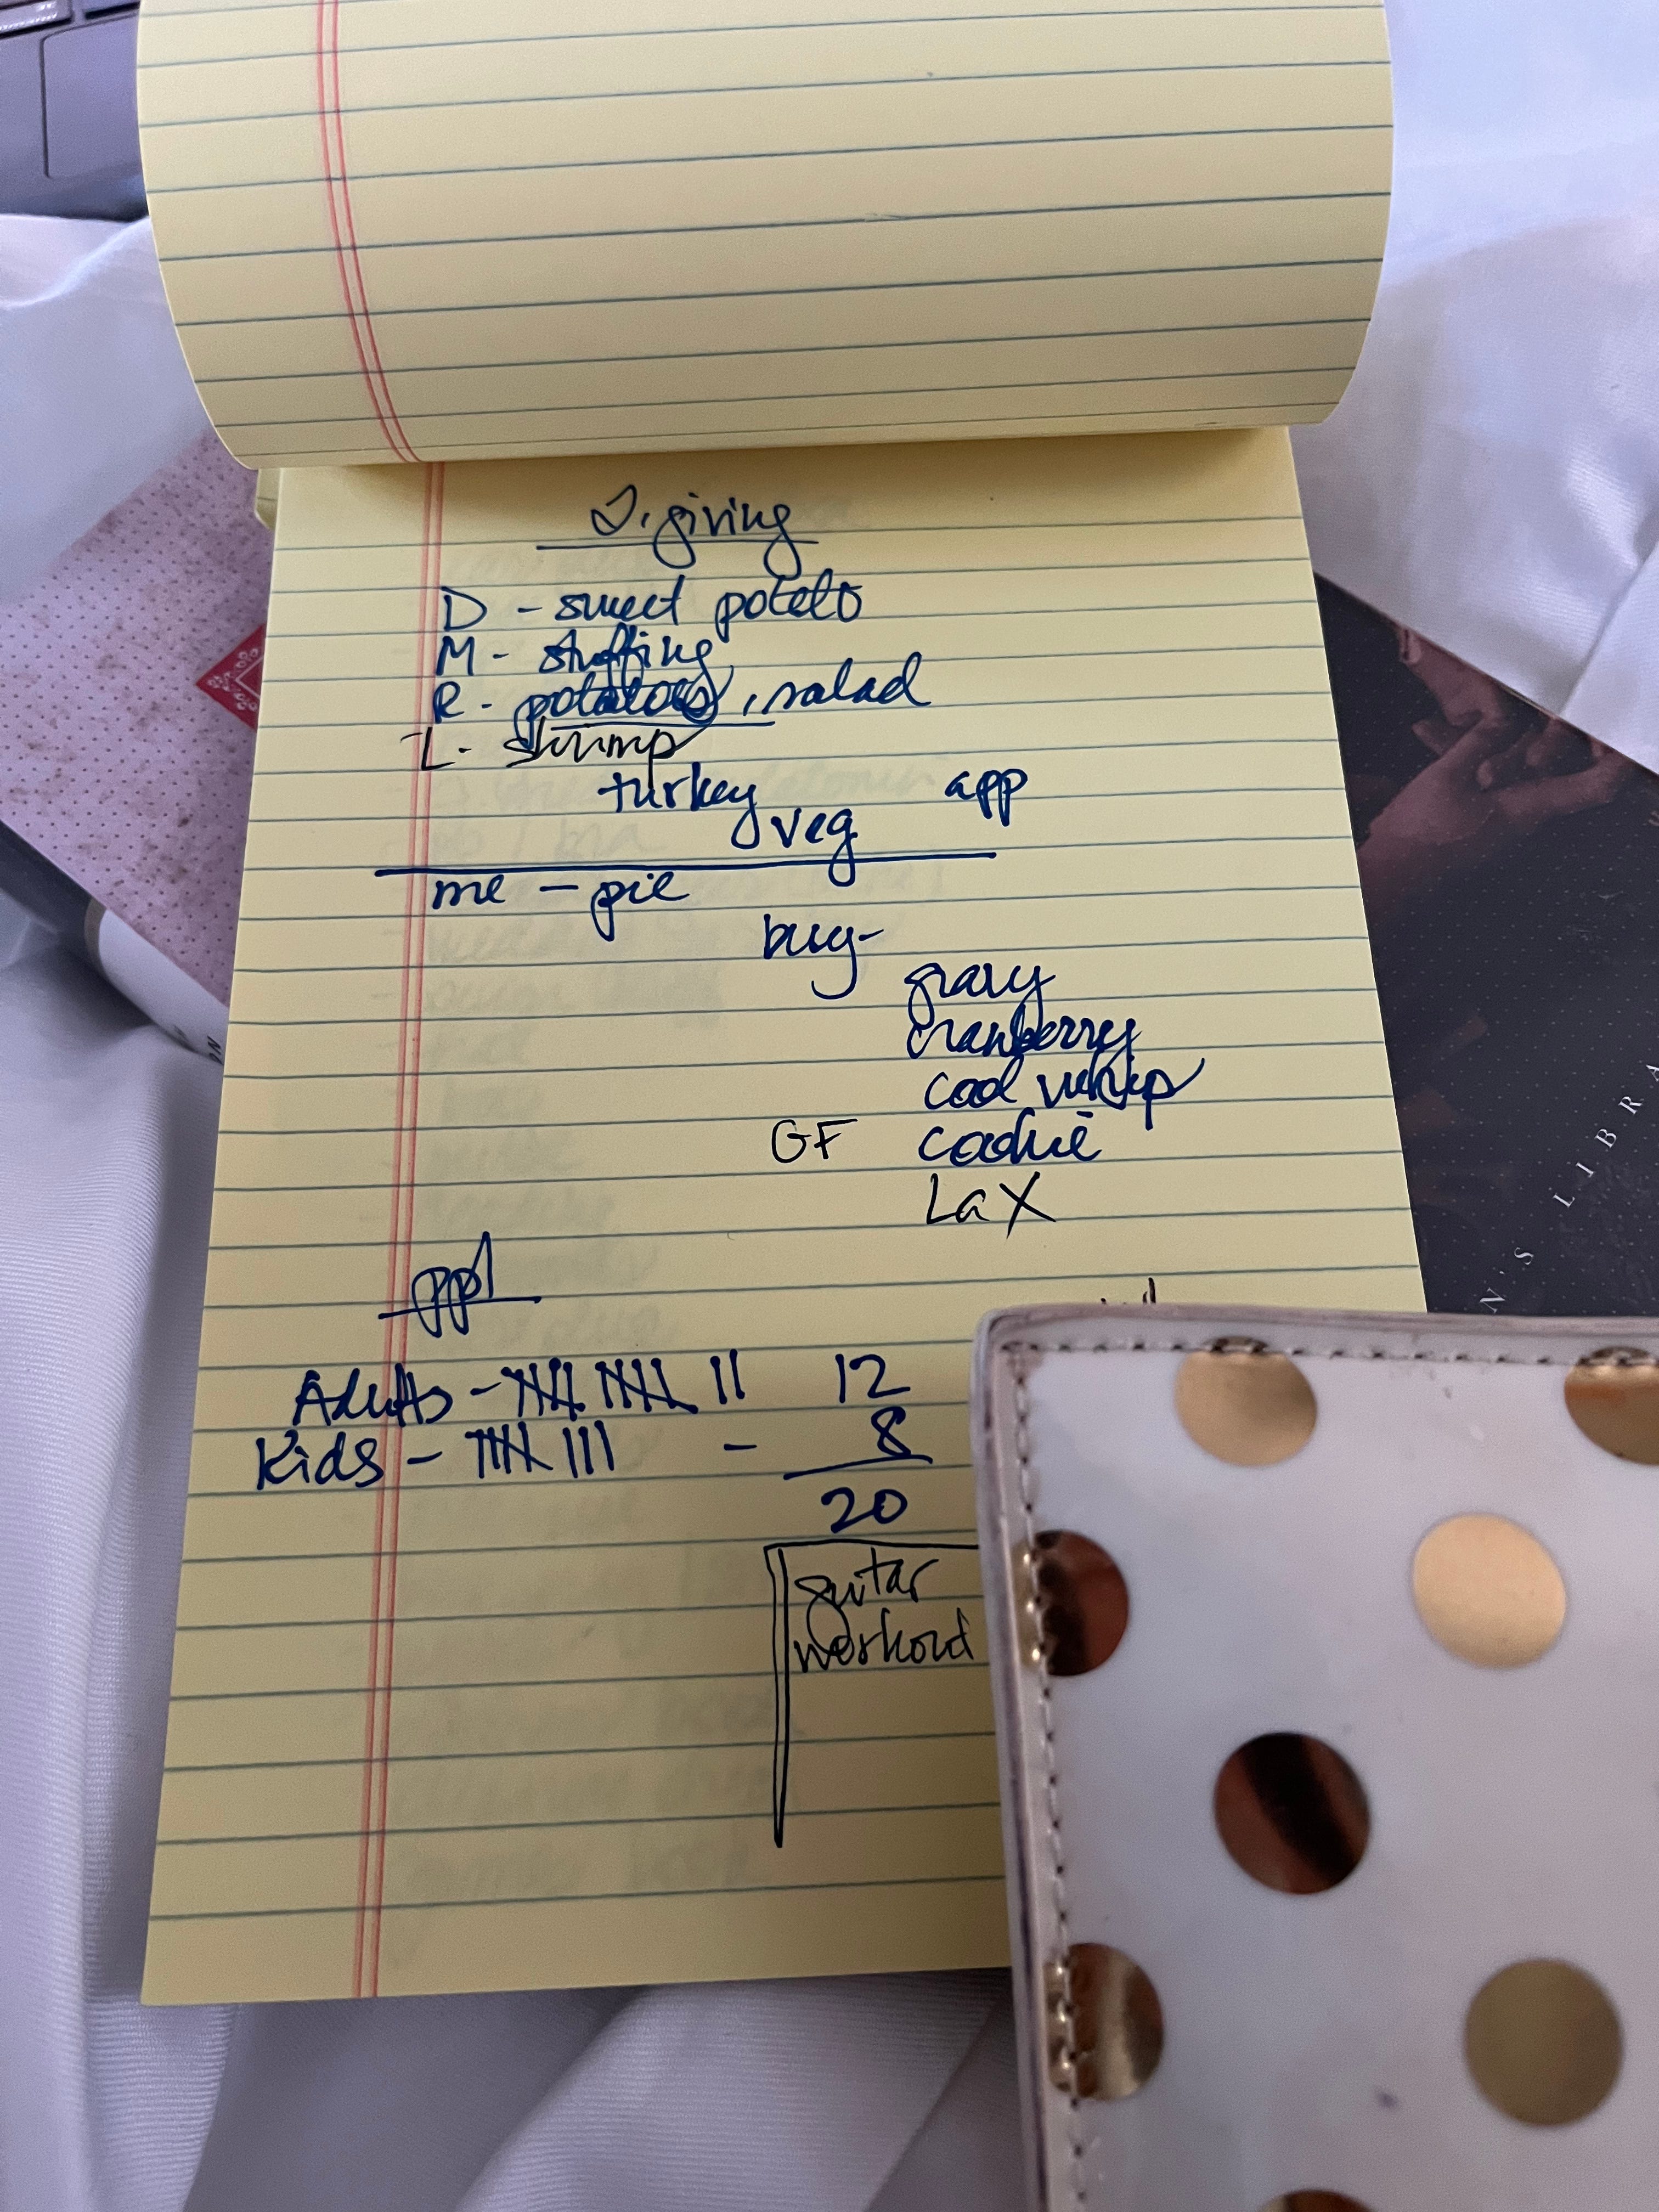 T.giving
D - sweet potato
M - stuffing
R - potatoes, salad
L - shrimp
turkey app
veg
me - pie
buy -
gravy
cranberry
cool whip
GF cookie
LaX
ppl
Adults - 12
Kids - - 8
20
guitar
N'S LIBRA
ON